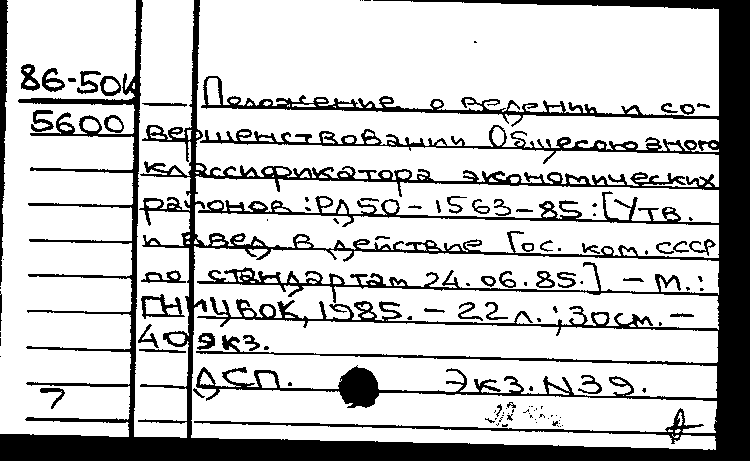 86-50к
5600
Положение о ведении и со-
вершенствовании Общесоюзного
классификатора экономических
районов : РД 50-1563-85 : [Утв.
и введ. в действие Гос. ком. СССР
по стандартам 24.06.85.]. - М.:
ГНИЦВОК, 1985. - 22 л.; 30 см. -
40 экз.
ДСП. Экз. N 39.
7